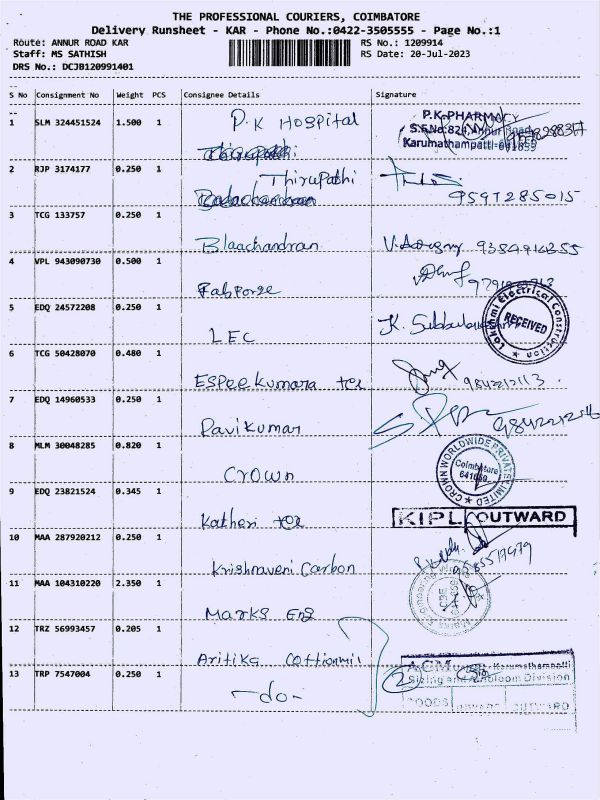 THE PROFESSIONAL COURIERS, COIMBATORE
Delivery Runsheet - KAR - Phone No.:0422-3505555 - Page No.:1
Route: ANNUR ROAD KAR
RS No.: 1209914
Staff: MS SATHISH
RS Date: 20-Jul-2023
DRS No.: DCJB120991401
S No Consignment No Weight PCS Consignee Details Signature
1 SLM 324451524 1.500 1 P.K Hospital
P.K PHARMACY
Karumathampatti-641659
2 RJP 3174177 0.250 1 Thirupathi
9597285015
3 TCG 133757 0.250 1 Blaachandran
4 VPL 943090730 0.500 1 Fabforge
5 EDQ 24572208 0.250 1 LEC
Lakshmi Electrical Construction
RECEIVED
6 TCG 50428070 0.480 1 ESPee kumara tex
9842212113
7 EDQ 14960533 0.250 1 Ravikumar
8 MLM 30048285 0.820 1 Crown
CROWN WORLDWIDE PRIVATE LIMITED
Coimbatore
641659
9 EDQ 23821524 0.345 1 Katheri tex
KIPL OUTWARD
10 MAA 287920212 0.250 1 Krishnaveni Carbon
11 MAA 104310220 2.350 1 Marks Eng
12 TRZ 56993457 0.205 1 Aritika Cottonmil
13 TRP 7547004 0.250 1 -do-
2
ACM Karumathampatti
Sizing and Division
GOODS